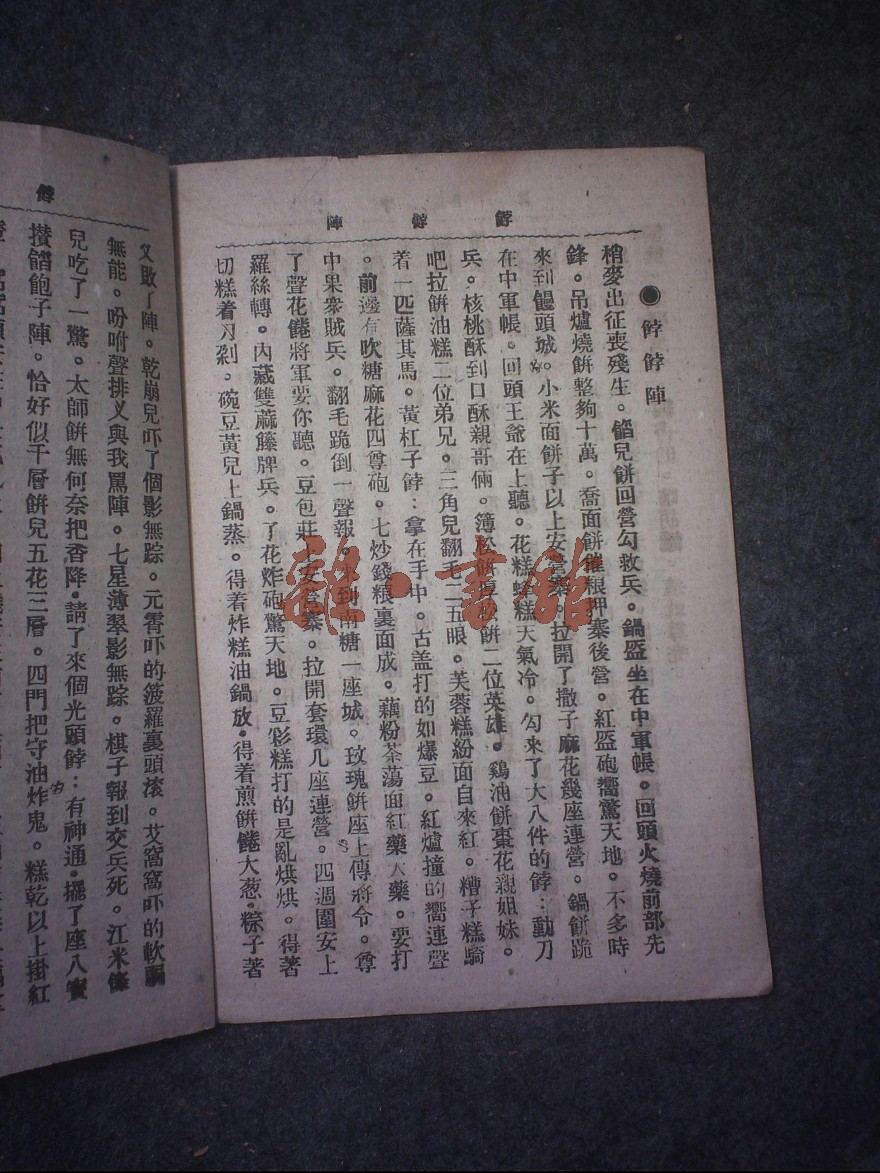 餑餑陣
●餑餑陣
稍麥出征喪殘生。餡兒餅回營勾救兵。鍋盔坐在中軍帳。回頭火燒前部先
鋒。吊爐燒餅整夠十萬。喬面餅催根押寨後營。紅盔砲嚮驚天地。不多時
來到饅頭城。小米面餅子以上安營寨。拉開了撒子麻花幾座連營。鍋餅跪
在中軍帳。回頭王爺在上聽。花糕蜂糕天氣冷。勾來了大八件的餑:動刀
兵。核桃酥到口酥親哥倆。簿松餅厚松餅二位英雄。鷄油餅棗花親姐妹。
吧拉餅油糕二位弟兄。三角兒翻毛二五眼。芙蓉糕紛面自來紅。糟子糕騎
着一匹薩其馬。黃杠子餑:拿在手中。古盖打的如爆豆。紅爐撞的嚮連聲
。前邊有吹糖麻花四尊砲。七炒錢粮裏面成。藕粉茶蕩面紅藥大藥。要打
中果衆賊兵。翻毛跪倒一聲報。來到南糖一座城。玫瑰餅座上傳將令。尊
了聲花饊將軍要你聽。豆包莊上安營寨。拉開套環几座連營。四過圍安上
羅絲轉。內藏雙蔴籐牌兵。了花炸砲驚天地。豆彩糕打的是亂烘烘。得著
切糕着刀剁。碗豆黃兒上鍋蒸。得着炸糕油鍋放。得着煎餅餋大葱。粽子著
餑
又敗了陣。乾崩兒吓了個影無踪。元霄吓的菠羅裏頭滚。艾窩窩吓的軟
無能。吩咐聲排义與我罵陣。七星薄翠影無踪。棋子報到交兵死。江米條
兒吃了一驚。太師餅無何奈把香降。請了來個光頭餑:有神通。擺了座八寶
攢餡飽子陣。恰好似千層餅兒五花三層。四門把守油炸鬼。糕乾以上掛紅
雜·書館